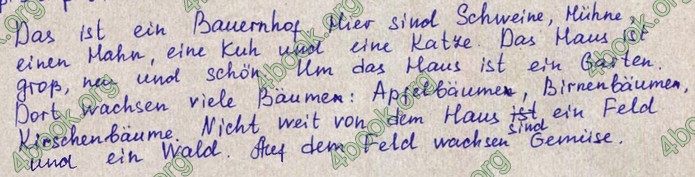 Das ist ein Bauernhof. Hier sind Schweine, Hühne,
einen Hahn, eine Kuh und eine Katze. Das Haus ist
groß, neu und schön. Um das Haus ist ein Garten.
Dort wachsen viele Bäumen: Apfelbäumen, Birnenbäumen,
Kirschenbäume. Nicht weit von dem Haus ist, ein Feld
sind
und ein Wald. Auf dem Feld wachsen Gemüse.
4book.org